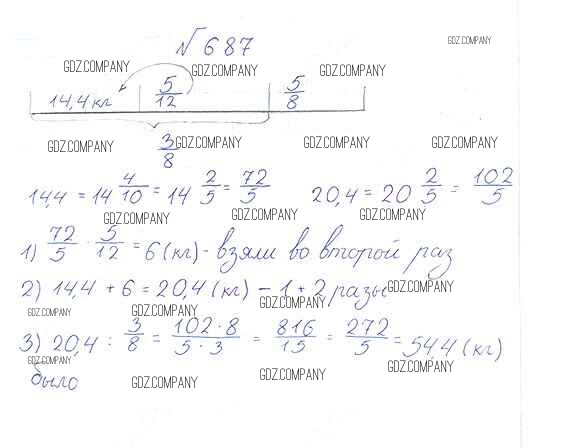 №687
GDZ.COMPANY
GDZ.COMPANY GDZ.COMPANY GDZ.COMPANY
14,4 кг 5/12 5/8
GDZ.COMPANY GDZ.COMPANY GDZ.COMPANY GDZ.COMPANY
3/8
14,4 = 14 4/10 = 14 2/5 = 72/5 20,4 = 20 2/5 = 102/5
GDZ.COMPANY GDZ.COMPANY GDZ.COMPANY
1) 72/5 · 5/12 = 6 (кг) - взяли во второй раз
2) 14,4 + 6 = 20,4 (кг) - 1 + 2 разы
GDZ.COMPANY GDZ.COMPANY GDZ.COMPANY GDZ.COMPANY
3) 20,4 : 3/8 = 102·8/5·3 = 816/15 = 272/5 = 54,4 (кг)
было
GDZ.COMPANY GDZ.COMPANY GDZ.COMPANY GDZ.COMPANY